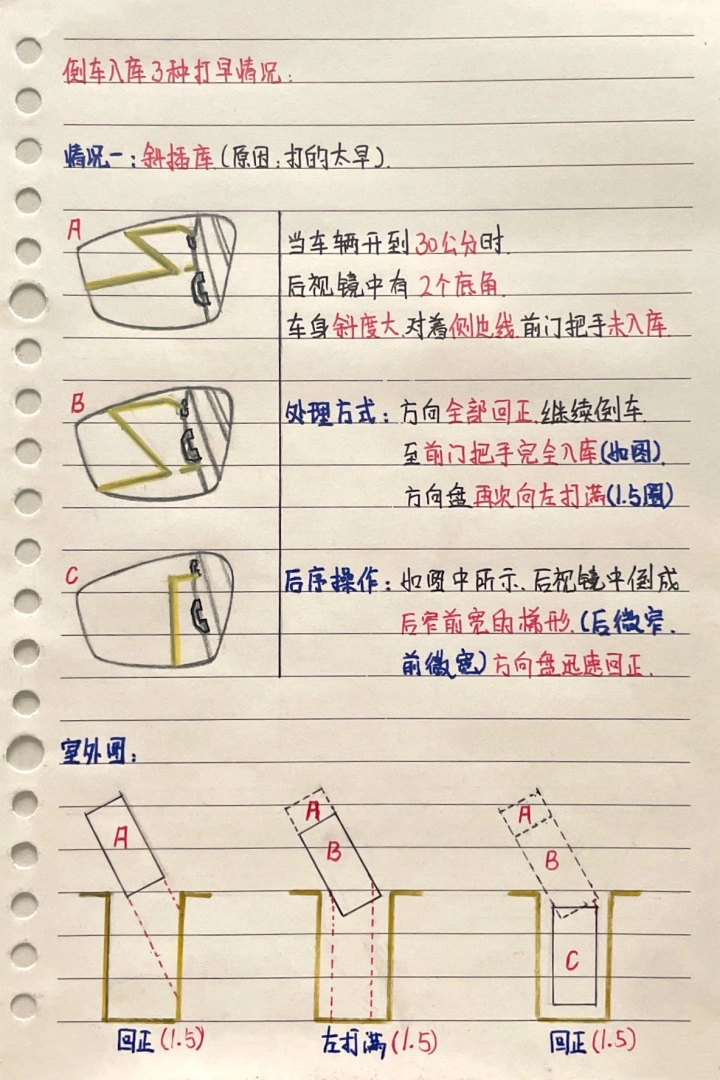 倒车入库3种打早情况:
情况一:斜插库(原因:打的太早).
A
当车辆开到30公分时.
后视镜中有2个底角.
车身斜度大.对着侧边线.前门把手未入库.
B
处理方式:方向全部回正.继续倒车.
至前门把手完全入库(如图).
方向盘再次向左打满(1.5圈)
C
后序操作:如图中所示.后视镜中倒成
后窄前宽的梯形.(后微窄.
前微宽)方向盘迅速回正.
室外图:
A
A
B
A
B
C
回正(1.5)
左打满(1.5)
回正(1.5)